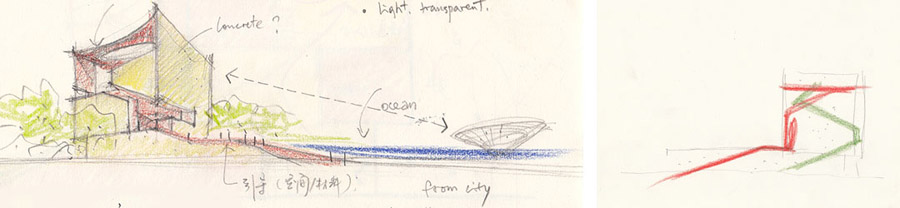 • Light, transparent.
concrete?
ocean
引导(空间/材料);
from city